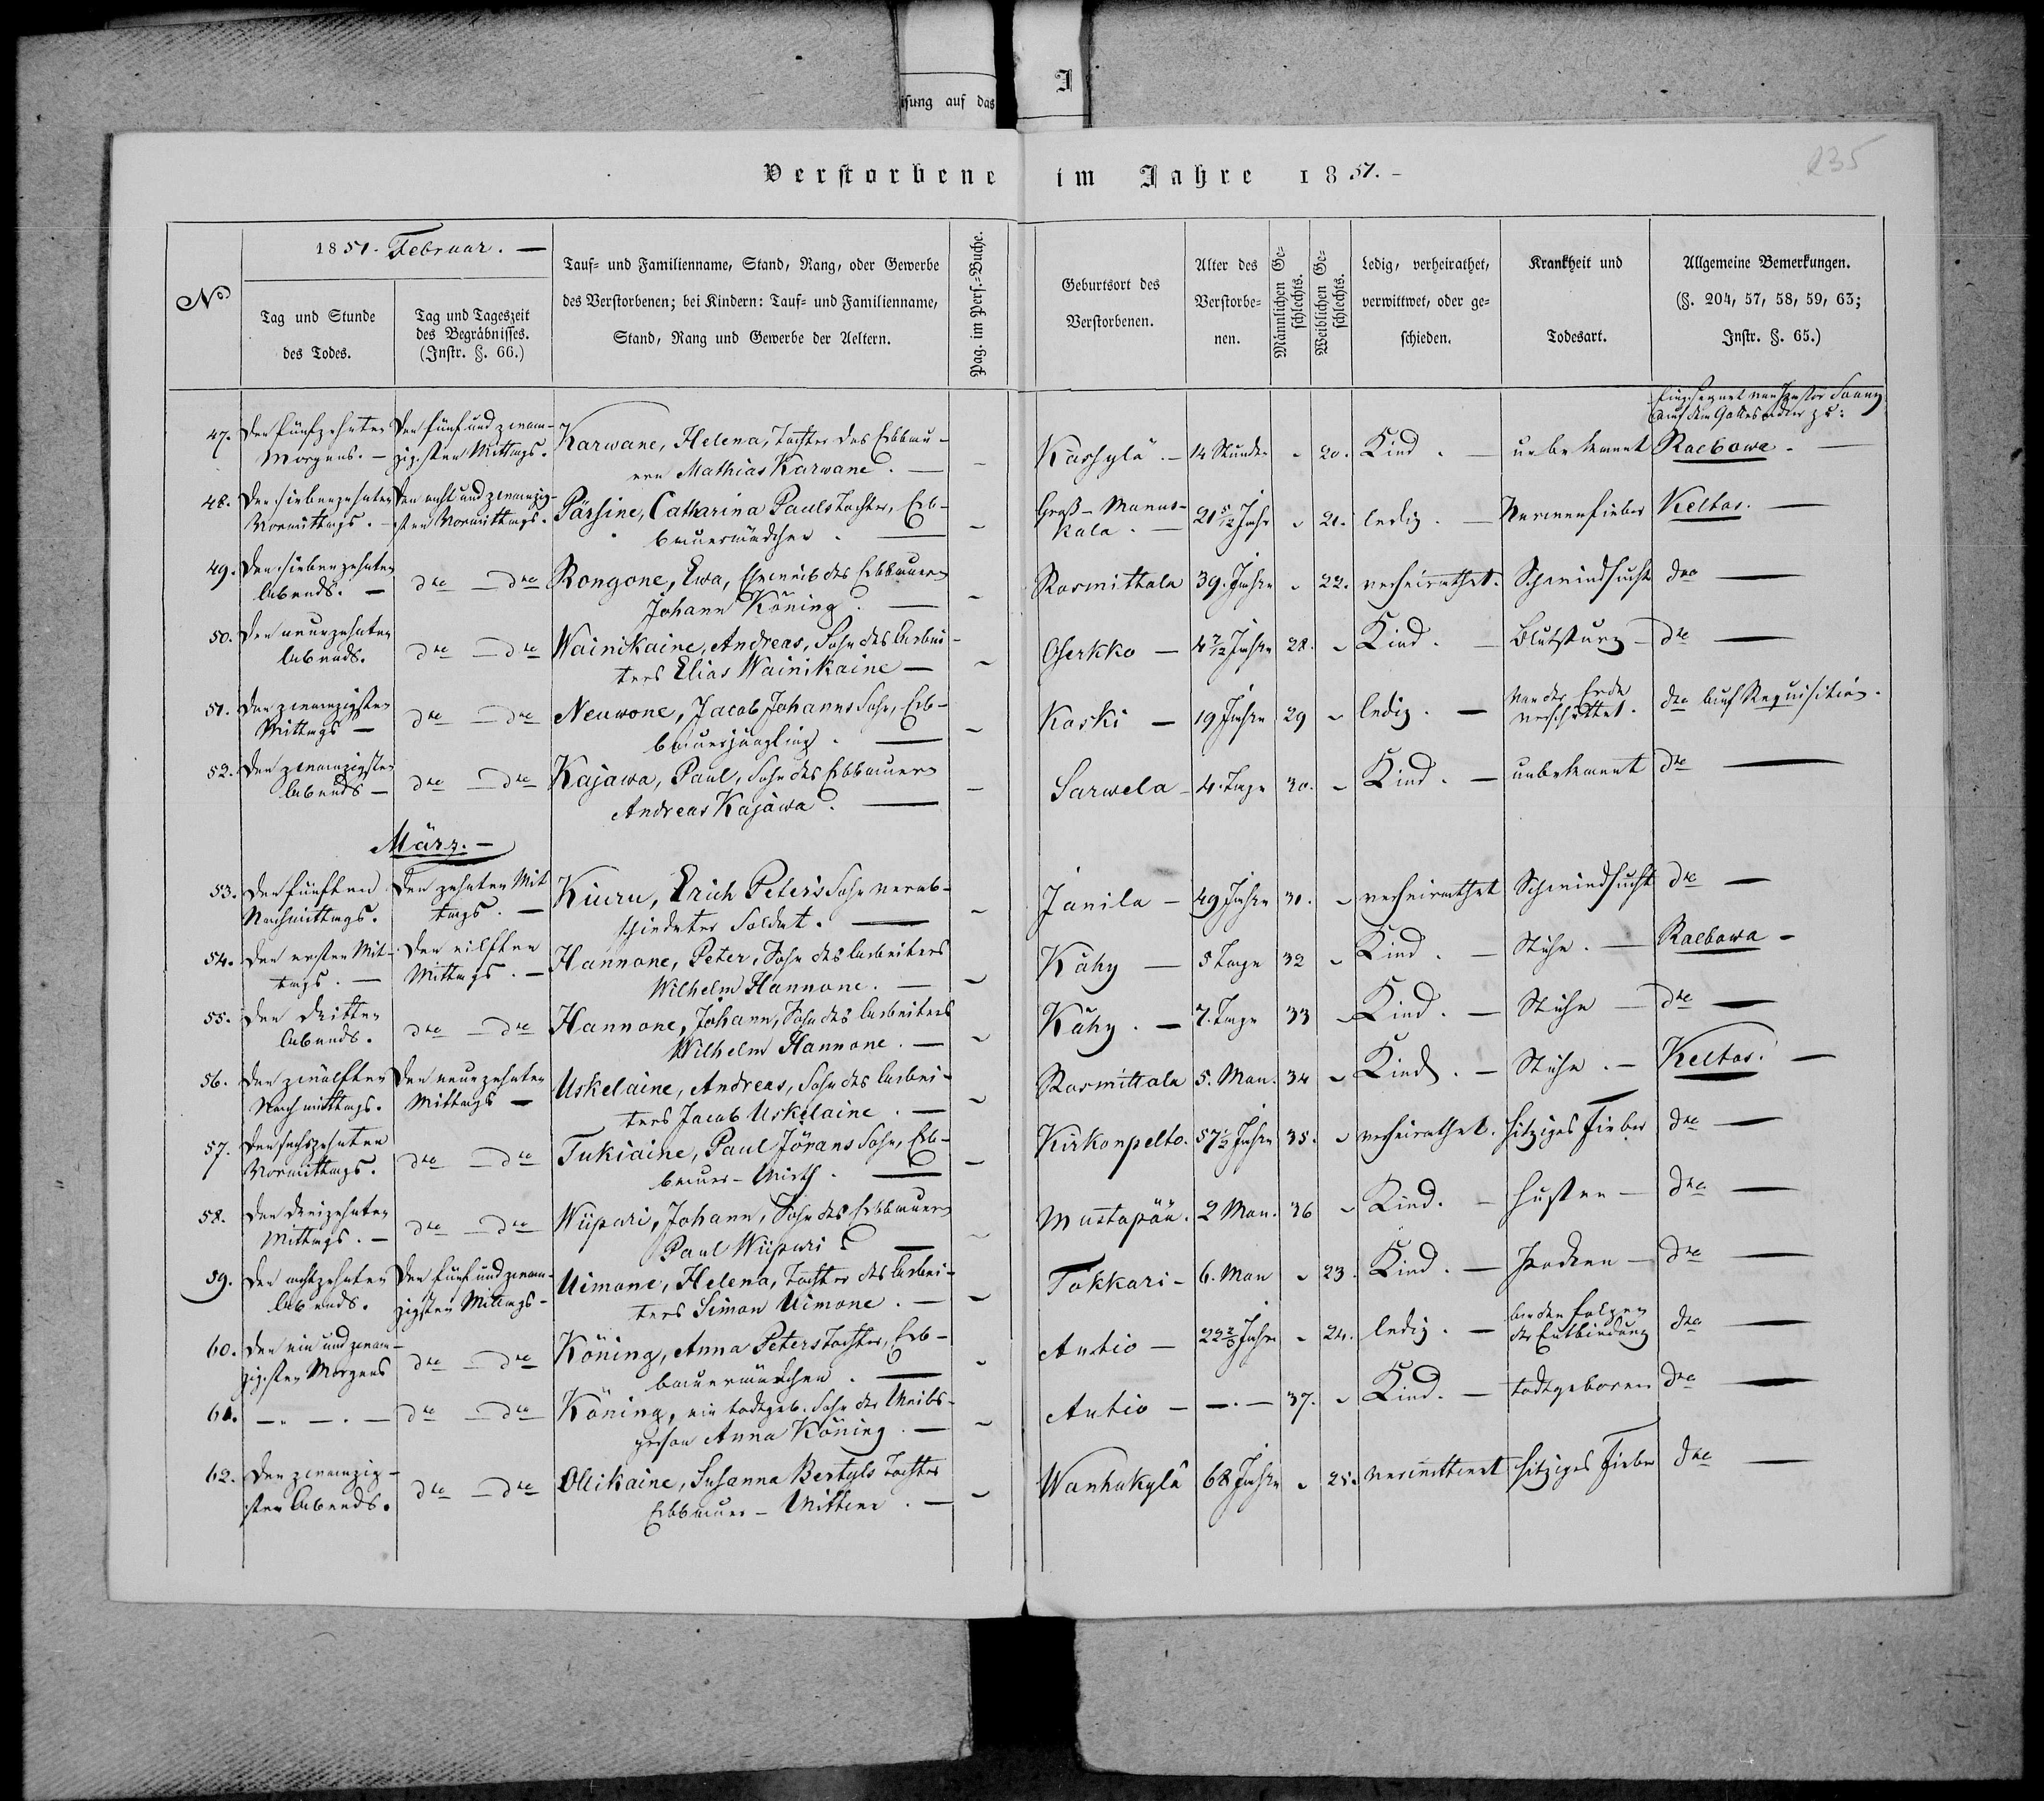 isung auf das
I
Verstorbene im Jahre 1851. –
135
1851. Februar. —
No
Tag und Stunde
des Todes.
Tag und Tageszeit
des Begräbnisses.
(Instr. §. 66.)
Tauf= und Familienname, Stand, Rang, oder Gewerbe
des Verstorbenen; bei Kindern: Tauf= und Familienname,
Stand, Rang und Gewerbe der Aeltern.
Pag. im Pers.=Buche.
Geburtsort des
Verstorbenen.
Alter des
Verstorbe=
nen.
Männlichen Ge=
schlechts.
Weiblichen Ge=
schlechts.
Ledig, verheirathet,
verwittwet, oder ge=
schieden.
Krankheit und
Todesart.
Allgemeine Bemerkungen.
(§. 204, 57, 58, 59, 63;
Instr. §. 65.)
Eingesegnet von Pastor
auf dem Gottesacker zu:
47. Den fünfzehnten Den fünf und zwan- Karwane, Helena, Tochter des Erbbau-
Morgens. – zigsten Mittags. ern Mathias Karwane. — Karhylä. – 14 Stunden 20. Kind. – unbekannt Raebowa. —
48. Den siebenzehnten Den acht und zwanzig- Pärsine, Catharina Pauls Tochter, Erb-
Vormittags. – sten Vormittags. bauermädchen. — Groß-Manus-
kala. – 21 5/12 Jahr 21. ledig. – Nervenfieber Keltos. —
49. Den siebenzehnten
Abends. – dto – dto Rongone, Ewa, Eheweib des Erbbauern
Johann Köning. — Rosmittala 39. Jahre 22. verheirathet. Schwindsucht dto —
50. Den neunzehnten
Abends. dto – dto Wainikaine, Andreas, Sohn des Arbei-
ters Elias Wainikaine — Oserkko – 4 7/12 Jahre 28. Kind. – Blutsturz – dto —
51. Den zwanzigsten
Mittags – dto – dto Neuwone, Jacob Johanns Sohn, Erb-
bauerjüngling. — Koski – 19 Jahre 29 ledig. – Von der Erde
verschüttet. dto Auf Requisition.
52. Den zwanzigsten
Abends – dto – dto Kajawa, Paul, Sohn des Erbbauern
Andreas Kajawa. — Sarwela – 4. Tage 30. Kind. – unbekannt dto —
März. –
53. Den fünften Den zehnten Mit Kiuru, Erich Peters Sohn verab-
Nachmittags. tags. – schiedeter Soldat. — Janila – 49 Jahre 31. verheirathet Schwindsucht dto —
54. Den ersten Mit- Den eilften Hannone, Peter, Sohn des Arbeiters
tags. – Mittags. – Wilhelm Hannone. — Kähy – 5 Tage 32 Kind. – Ruhr. – Raebowa –
55. Den dritten
Abends. dto – dto Hannone, Johann, Sohn des Arbeiters
Wilhelm Hannone. – Kähy. – 7. Tage 33 Kind. – Ruhr – dto —
56. Den zwölften Den neunzehnten Uskelaine, Andreas, Sohn des Arbei-
Nachmittags. Mittags – ters Jacob Uskelaine. – Rosmittala 5. Mon. 34 Kind. – Ruhr. – Keltos. —
57. Den sechszehnten
Vormittags. dto – dto Tukiaine, Paul Jörans Sohn, Erb-
bauer-Wirth. — Kirkonpelto. 57 1/2 Jahre 35. verheirathet. hitziges Fieber dto —
58. Den dreizehnten
Mittags. – dto – dto Wiipuri, Johann, Sohn des Erbbauern
Paul Wiipuri — Mustapää. 2 Mon. 36 Kind. – Husten – dto —
59. Den achtzehnten Den fünf und zwan- Uimone, Helena, Tochter des Arbei-
Abends. zigsten Mittags – ters Simon Uimone. – Tokkari – 6. Mon 23. Kind. – Pocken – dto —
60. Den ein und zwan-
zigsten Morgens dto – dto Köning, Anna Peters Tochter, Erb-
bauermädchen. — Antio – 22 2/3 Jahre 24. ledig. – An den Folgen
der Entbindung dto —
61. –. –. – dto – dto Köning, ein todtgeb. Sohn der Weibs-
person Anna Köning. – Antio – –.– 37. Kind. – todtgeboren dto —
62. Den zwanzig-
sten Abends. dto – dto Ollikaine, Susanna Bertyls Tochter
Erbbauer-Wittwe. – Wanhakylä 68 Jahre 25. verwittwet hitziges Fieber dto —